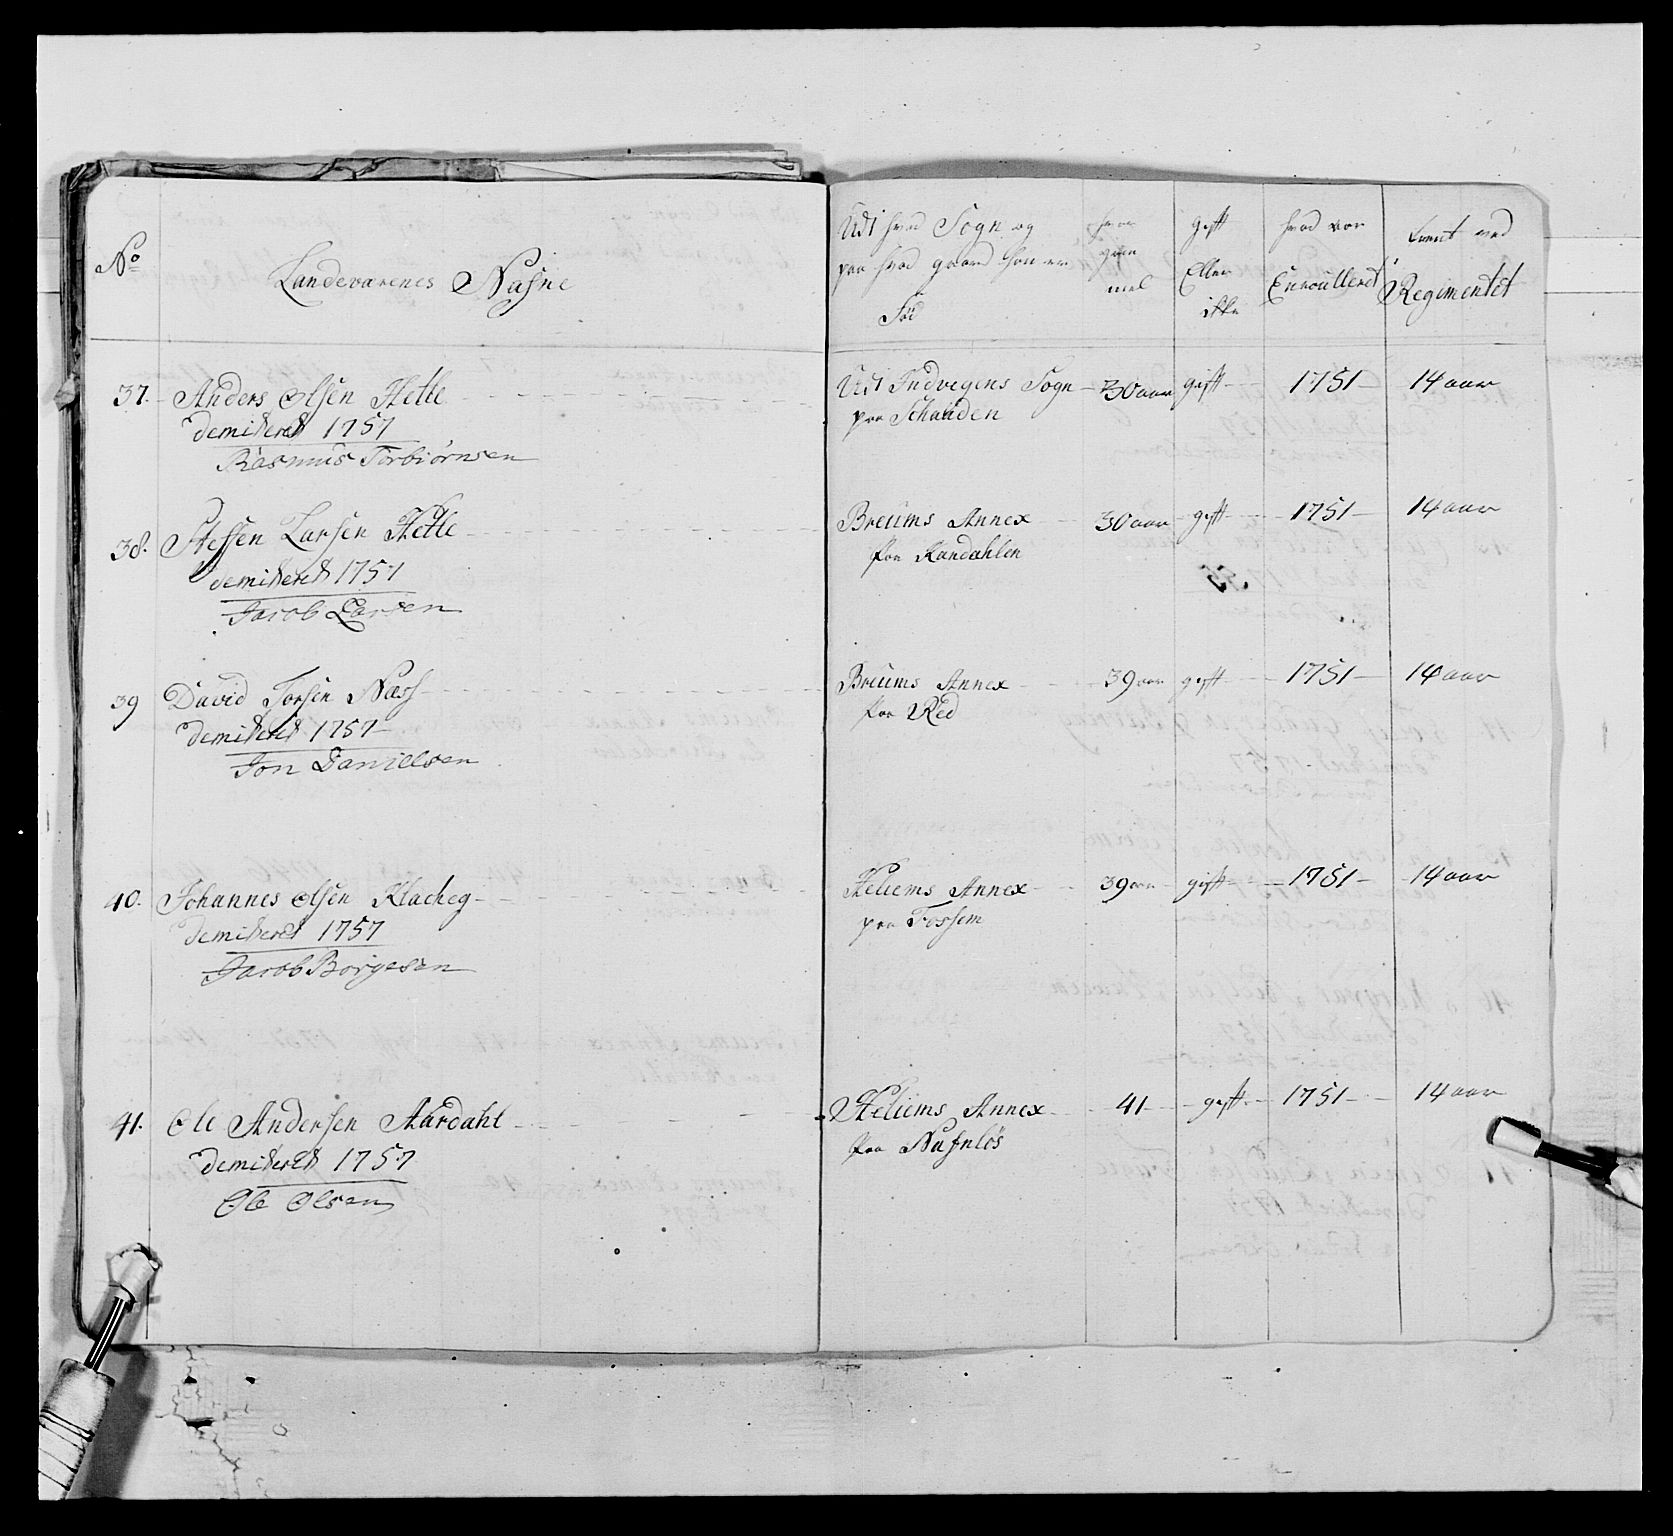 No
Landevarenes Nafne
Udi hvad Sogn og
paa hvad gaard han er
Föd
hvor
gam
mel
gift
Eller
ikke
hvad aar
Enroulleret
tient ved
Regimentet
37. Anders Olsen Hetle Udi Indvigens Sogn 30 aar gift 1751 14 aar
demiteret 1757 paa Schaüden
Rasmus Torbiörnsen
38. Steffen Larsen Hetle Breüms Annex 30 aar gift 1751 14 aar
demiteret 1757 paa Randahlen
Jacob Larsen
39 David Torsen Næss Breüms Annex 39 aar gift 1751 14 aar
demiteret 1757 paa Red
Jon Danielsen
40. Johannes Olsen Klacheg Annex 39 aar gift 1751 14 aar
demiteret 1757 paa Fossem
Jacob Borgesen
41. Ole Andersen Aardahl Annex 41 gift 1751 14 aar
demiteret 1757 paa
Ole Olsen